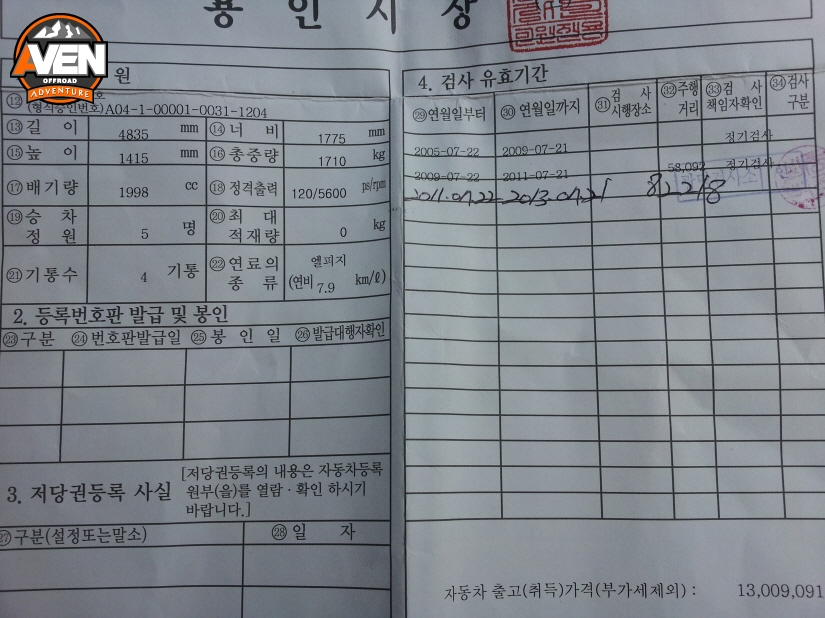 용인시장
AVEN
OFFROAD
ADVENTURE
원
4. 검사 유효기간
⑫ (형식승인번호)A04-1-00001-0031-1204
⑬길이 4835 mm ⑭너비 1775 mm
⑮높이 1415 mm ⑯총중량 1710 kg
⑰배기량 1998 cc ⑱정격출력 120/5600 ps/rpm
⑲승차정원 5 명 ⑳최대적재량 0 kg
㉑기통수 4 기통 ㉒연료의종류 엘피지 (연비 7.9 km/ℓ)
2. 등록번호판 발급 및 봉인
㉓구분 ㉔번호판발급일 ㉕봉인일 ㉖발급대행자확인
3. 저당권등록 사실 [저당권등록의 내용은 자동차등록
원부(을)를 열람·확인 하시기
바랍니다.]
㉗구분(설정또는말소) ㉘일 자
㉙연월일부터 ㉚연월일까지 ㉛검사시행장소 ㉜주행거리 ㉝검사책임자확인 ㉞검사구분
2005-07-22 2009-07-21 정기검사
2009-07-22 2011-07-21 58,092 정기검사
2011.07.22-2013.07.21 82218
자동차 출고(취득)가격(부가세제외) : 13,009,091